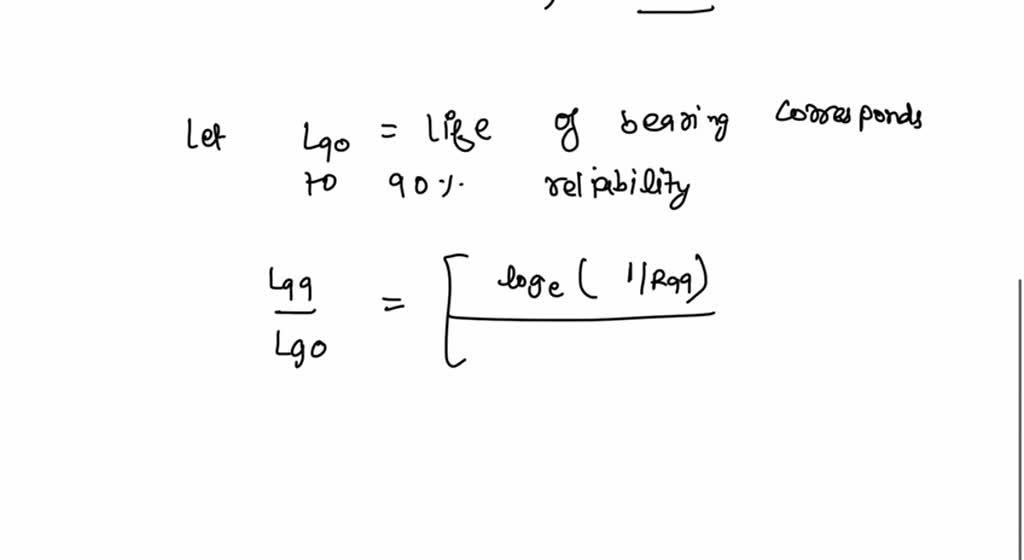 Let L90 = life of bearing corresponds
to 90% reliability
L99
L90
= [ loge ( 1/R99)